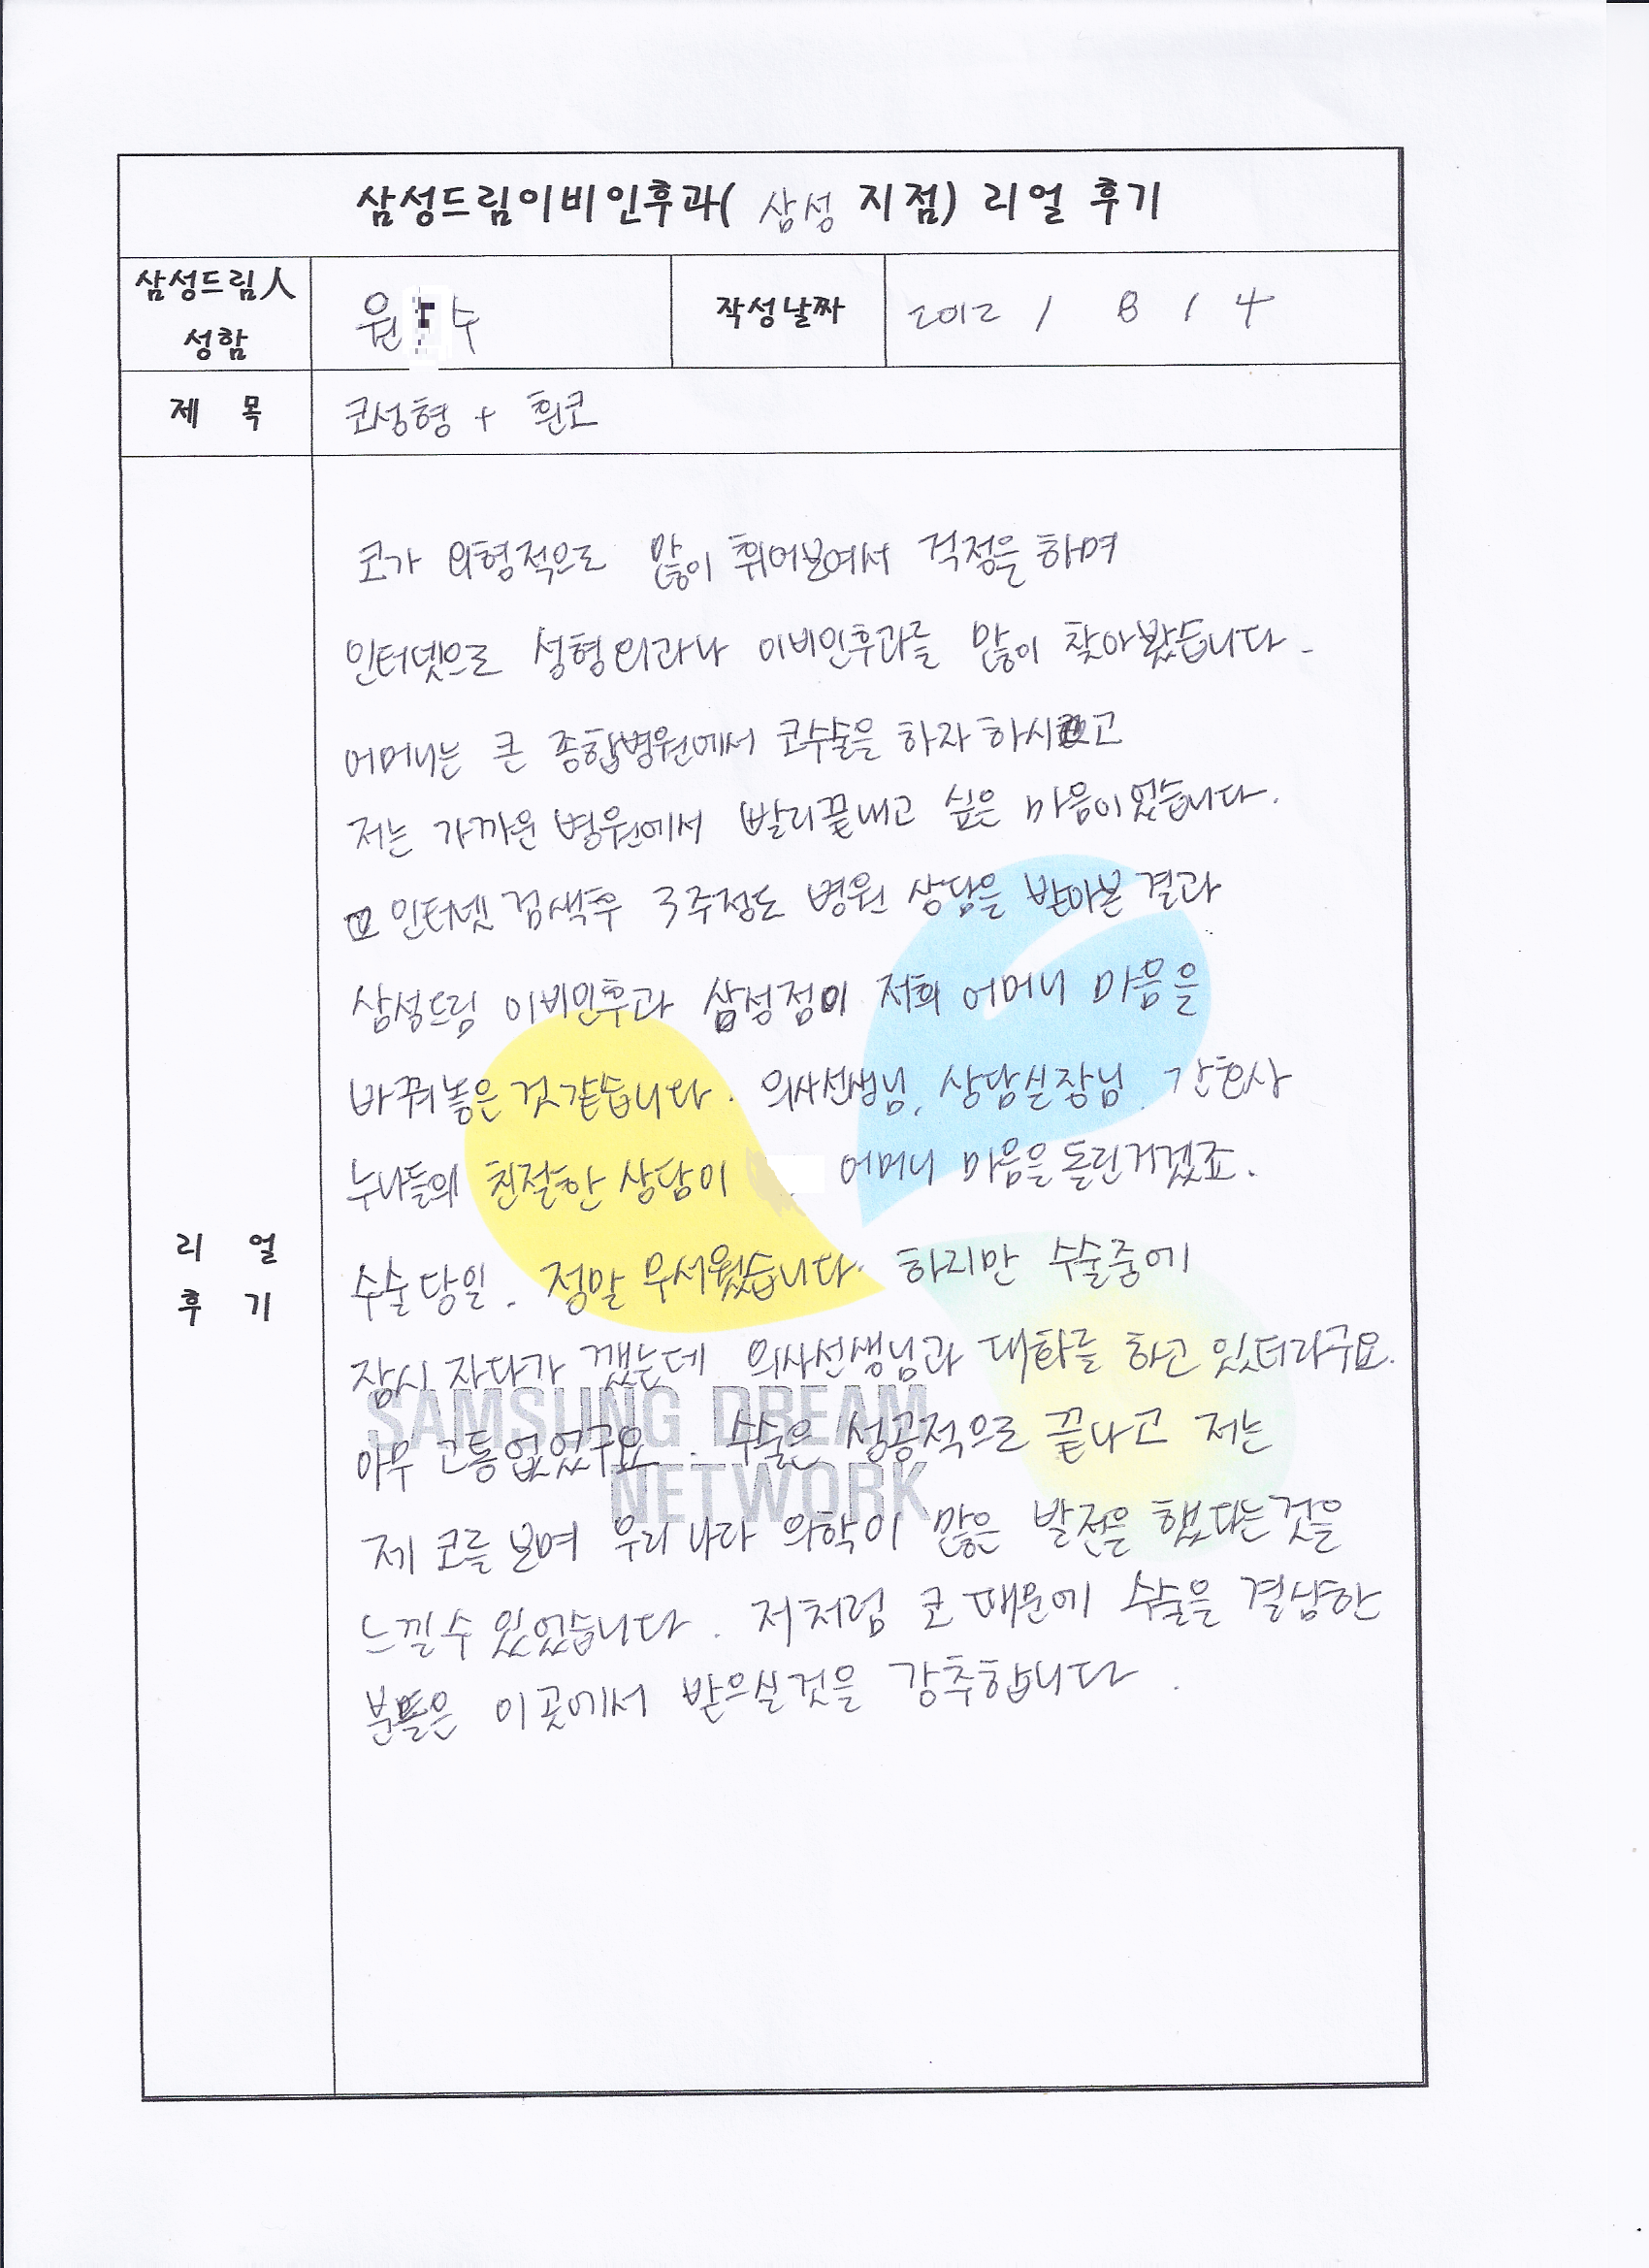 삼성드림이비인후과( 삼성 지점) 리얼 후기
삼성드림人 성함
원 수
작성날짜
2012 / 8 / 4
제 목
코성형 + 휜코
리 얼 후 기
코가 외형적으로 많이 휘어보여서 걱정을 하며
인터넷으로 성형외과나 이비인후과를 많이 찾아봤습니다.
어머니는 큰 종합병원에서 코수술을 하자 하시고
저는 가까운 병원에서 빨리끝내고 싶은 마음이었습니다.
인터넷 검색후 3주정도 병원 상담을 받아본 결과
삼성드림 이비인후과 삼성점이 저희 어머니 마음을
바꿔놓은 것같습니다. 의사선생님, 상담실장님, 간호사
누나들의 친절한 상담이 어머니 마음을 돌린거겠죠.
수술당일. 정말 무서웠습니다. 하지만 수술중에
잠시 자다가 깼는데 의사선생님과 대화를 하고 있더라구요.
아무 고통없었구요. 수술은 성공적으로 끝나고 저는
제 코를 보며 우리나라 의학이 많은 발전을 했다는것을
느낄수 있었습니다. 저처럼 코 때문에 수술을 결심한
분들은 이곳에서 받으실것을 강추합니다.
SAMSUNG DREAM
NETWORK